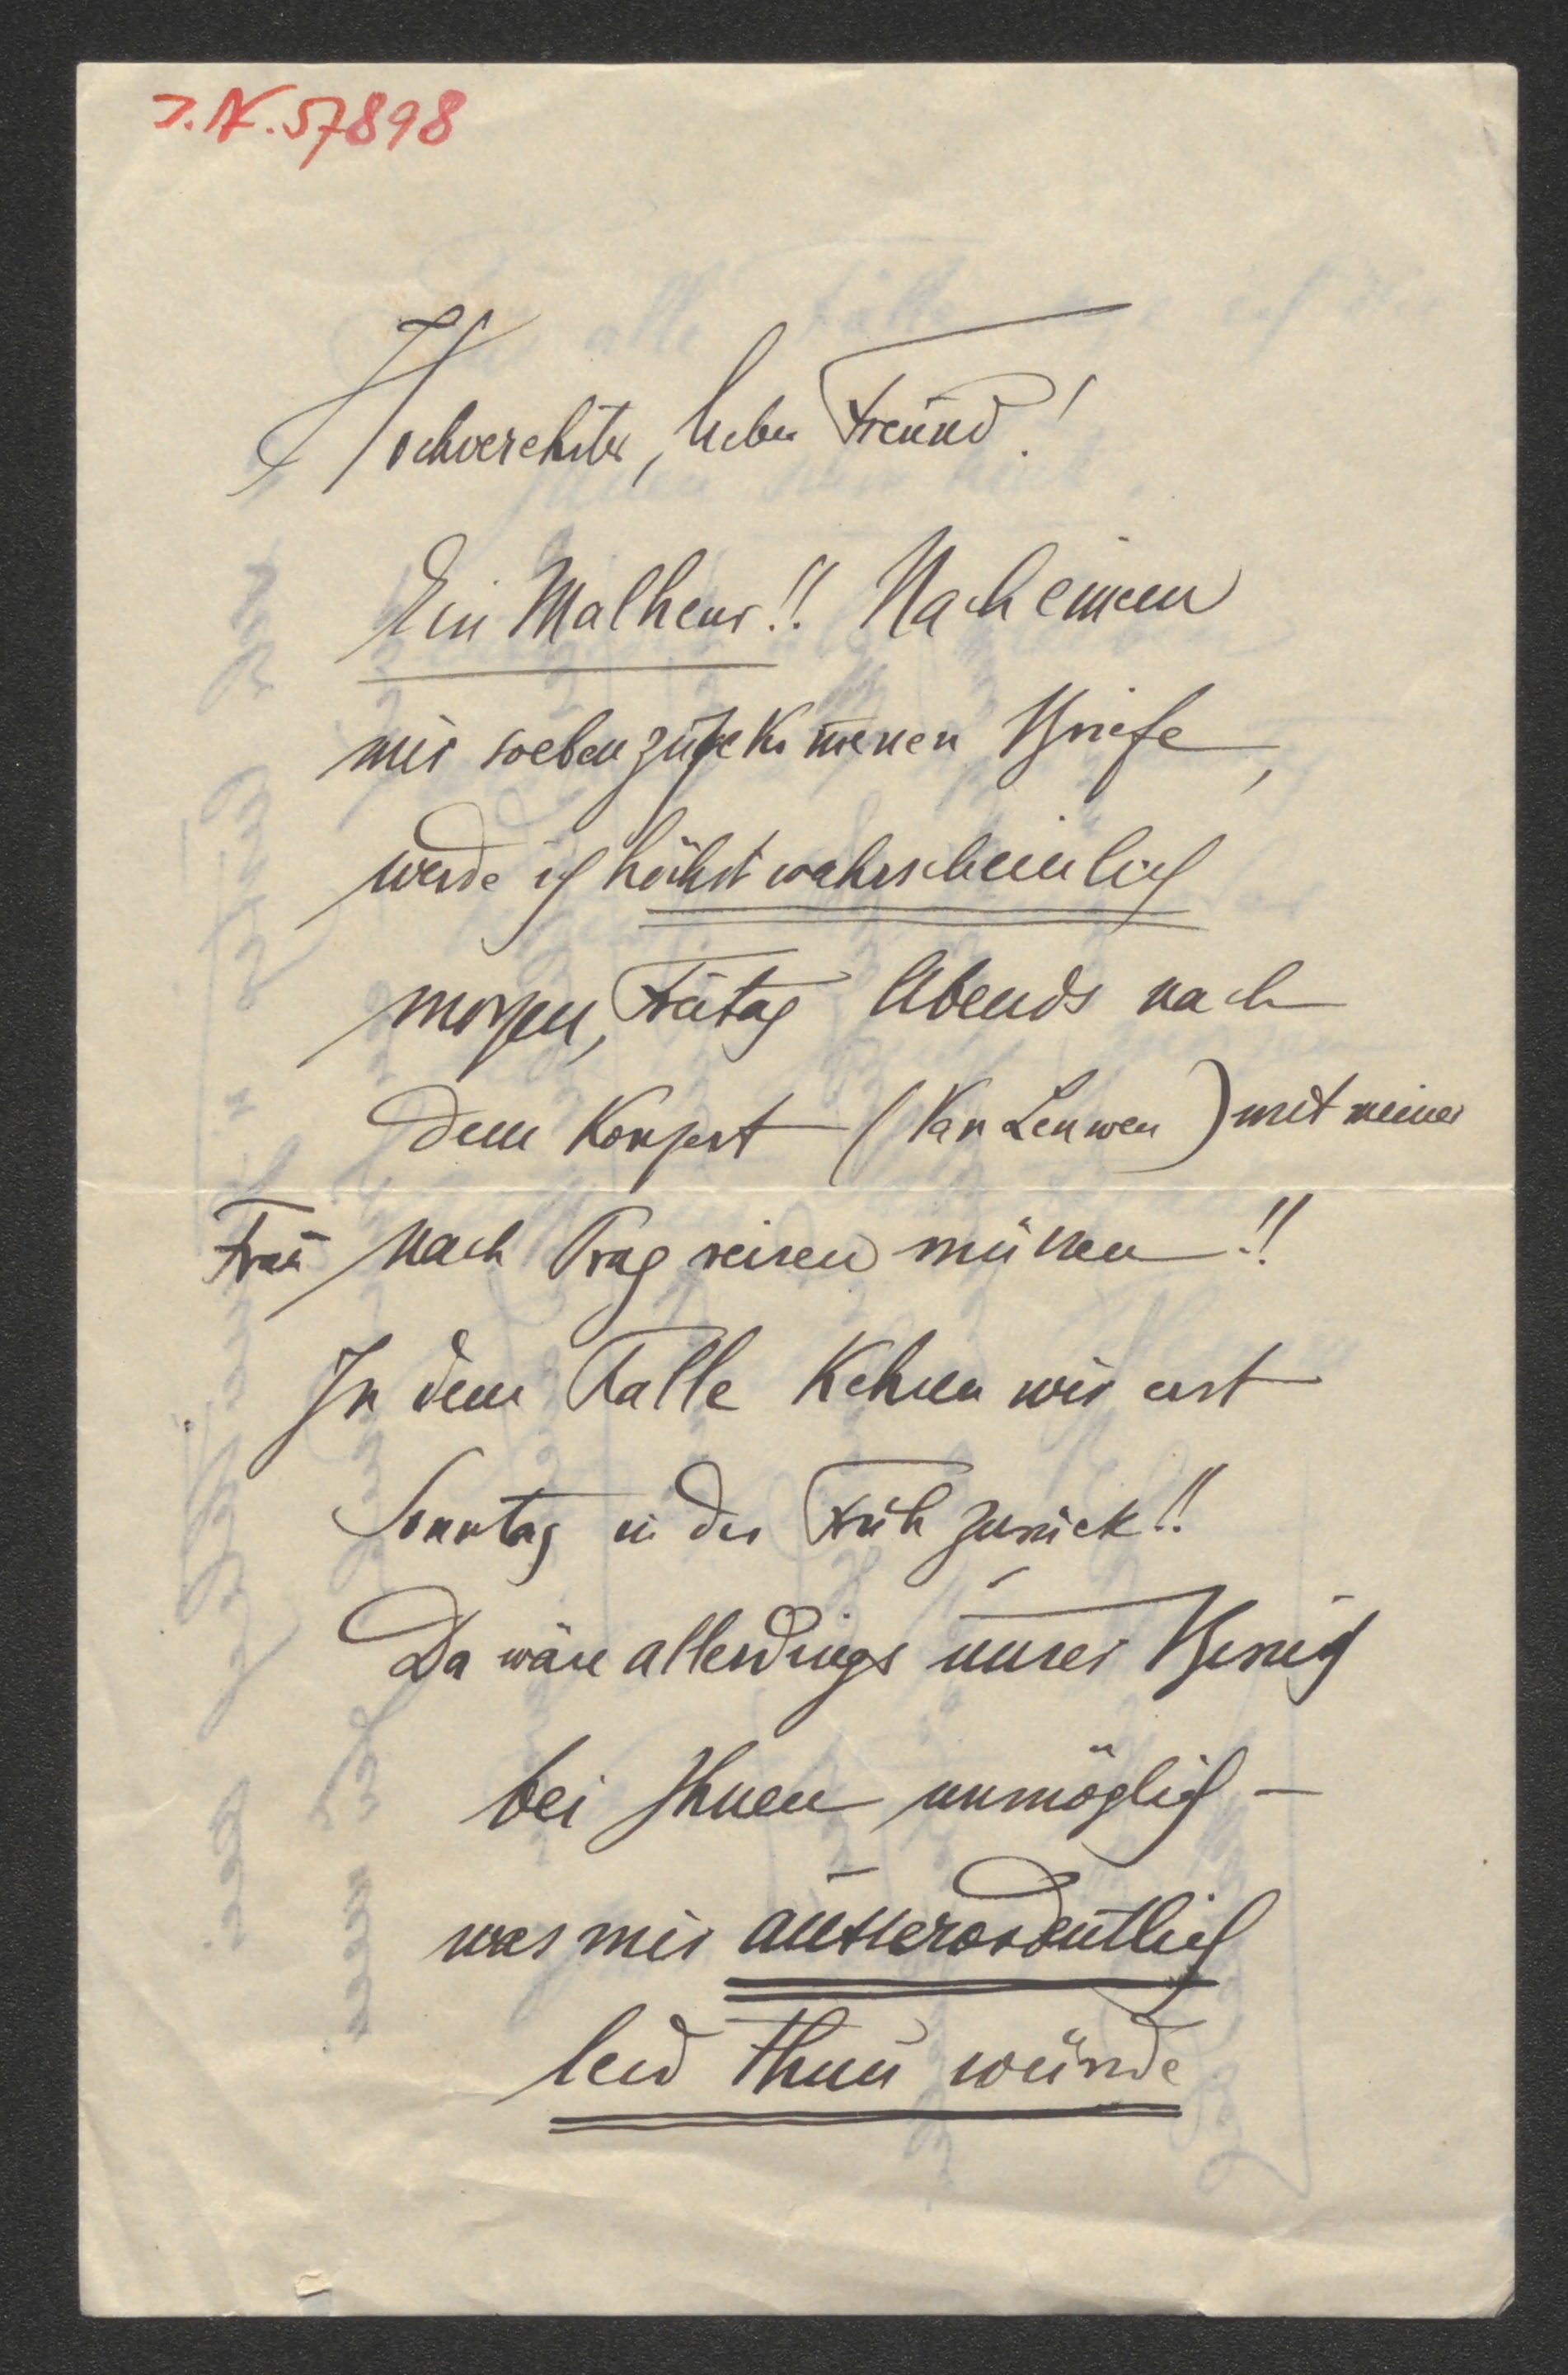 J.N. 57898
Hochverehrter, lieber Freund!
Ein Malheur!! Nach einem
mir soeben zugekommenen Briefe,
werde ich höchst wahrscheinlich
morgen, Freitag Abends nach
dem Konzert (Van Leuwen) mit meiner
Frau nach Prag reisen müssen!!
In dem Falle kehren wir erst
Sonntag in der Früh zurück!!
Da wäre allerdings unser Besuch
bei Ihnen unmöglich –
was mir ausserordentlich
leid thun würde